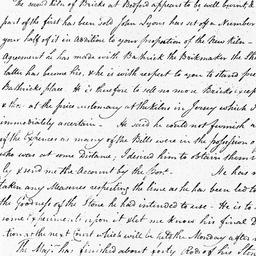 The most kiln of Bricks at Bedford appears to be well burnt &
part of the first has been sold John Lyons has set off a Number
your half of it in addition to your proportion of the New Kiln -
Agreement he has made with Bathrick the Brickmaker the Sh
latter has become his, & he is with respect to you to stand pre
Bathricks place. He is therefore to sell no more Bricks excep
& his at the price customary at the kilns in Jersey which I
immediately ascertain - He said he could not furnish
of the Expences as many of the Bills were in the possession
who was at some Distance, I desired him to obtain them
by & send me the Account by the Post - He has
taken any Measures respecting the lime as he has been led to
the Goodness of the Stone he had intended to use - He is to
some Experiments upon it & let me know his final D
tion at the next Court which will be held the Monday after
The Majr has finished about forty Rod of his Stone